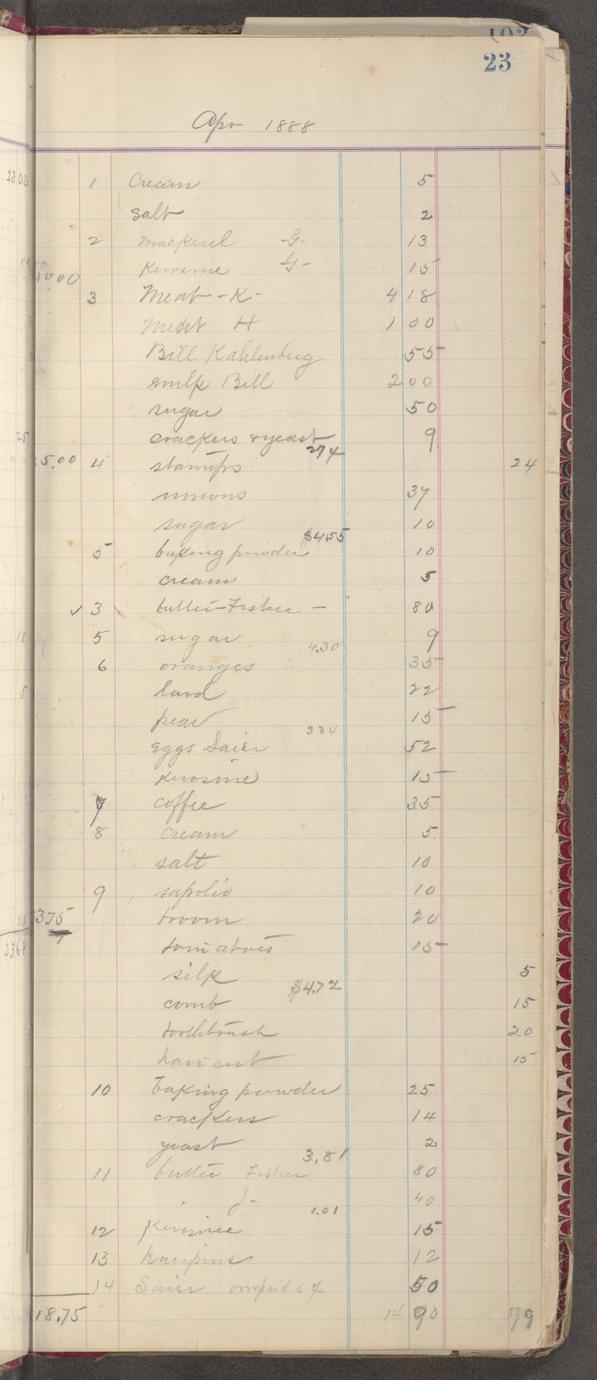 23
Apr 1888
1 Cream 5
Salt 2
2 Mackerel -G- 13
Kerosine G- 15
3 Meat -K- 4 18
Meat H 1 00
Bill Kahlenberg 55
milk Bill 2 00
sugar 50
crackers & yeast 9
274
5.00 4 stamps 24
onions 37
sugar 10
$4.55
5 baking powder 10
cream 5
✓ 3 butter-Fisher - 80
5 sugar 9
4.30
6 oranges 35
lard 22
peas 15
384
eggs Saier 52
kerosine 15
7 coffee 35
8 cream 5
salt 10
9 sapolio 10
375 broom 20
2368 tomatoes 15
silk 5
$4.72
comb 15
toothbrush 20
hair cut 15
10 baking powder 25
crackers 14
yeast 2
3.81
11 butter Fisher 80
" J- 40
1.01
12 Kerosine 15
13 hairpins 12
14 Saier overpaid 5¢ 50
18.75 14 90 79